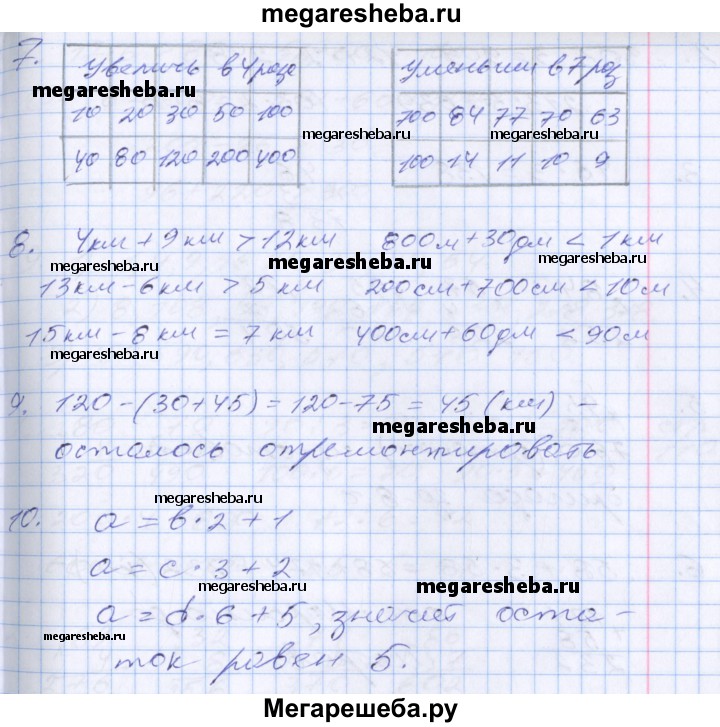 megaresheba.ru
7. Увеличь в 4 раза
Уменьши в 7 раз
megaresheba.ru
10 20 30 50 100
100 84 77 70 63
megaresheba.ru
megaresheba.ru
40 80 120 200 400
100 14 11 10 9
8. 4км + 9км > 12км 800м + 30дм < 1км
megaresheba.ru
megaresheba.ru
megaresheba.ru
13км - 6км > 5км 200см + 700см < 10м
15км - 8км = 7км 400см + 60дм < 90м
megaresheba.ru
megaresheba.ru
9. 120 - (30 + 45) = 120 - 75 = 45 (км) -
megaresheba.ru
осталось отремонтировать
megaresheba.ru
10. a = b · 2 + 1
a = c · 3 + 2
megaresheba.ru
megaresheba.ru
a = d · 6 + 5, значит оста -
megaresheba.ru
ток равен 5.
Мегарешеба.ру